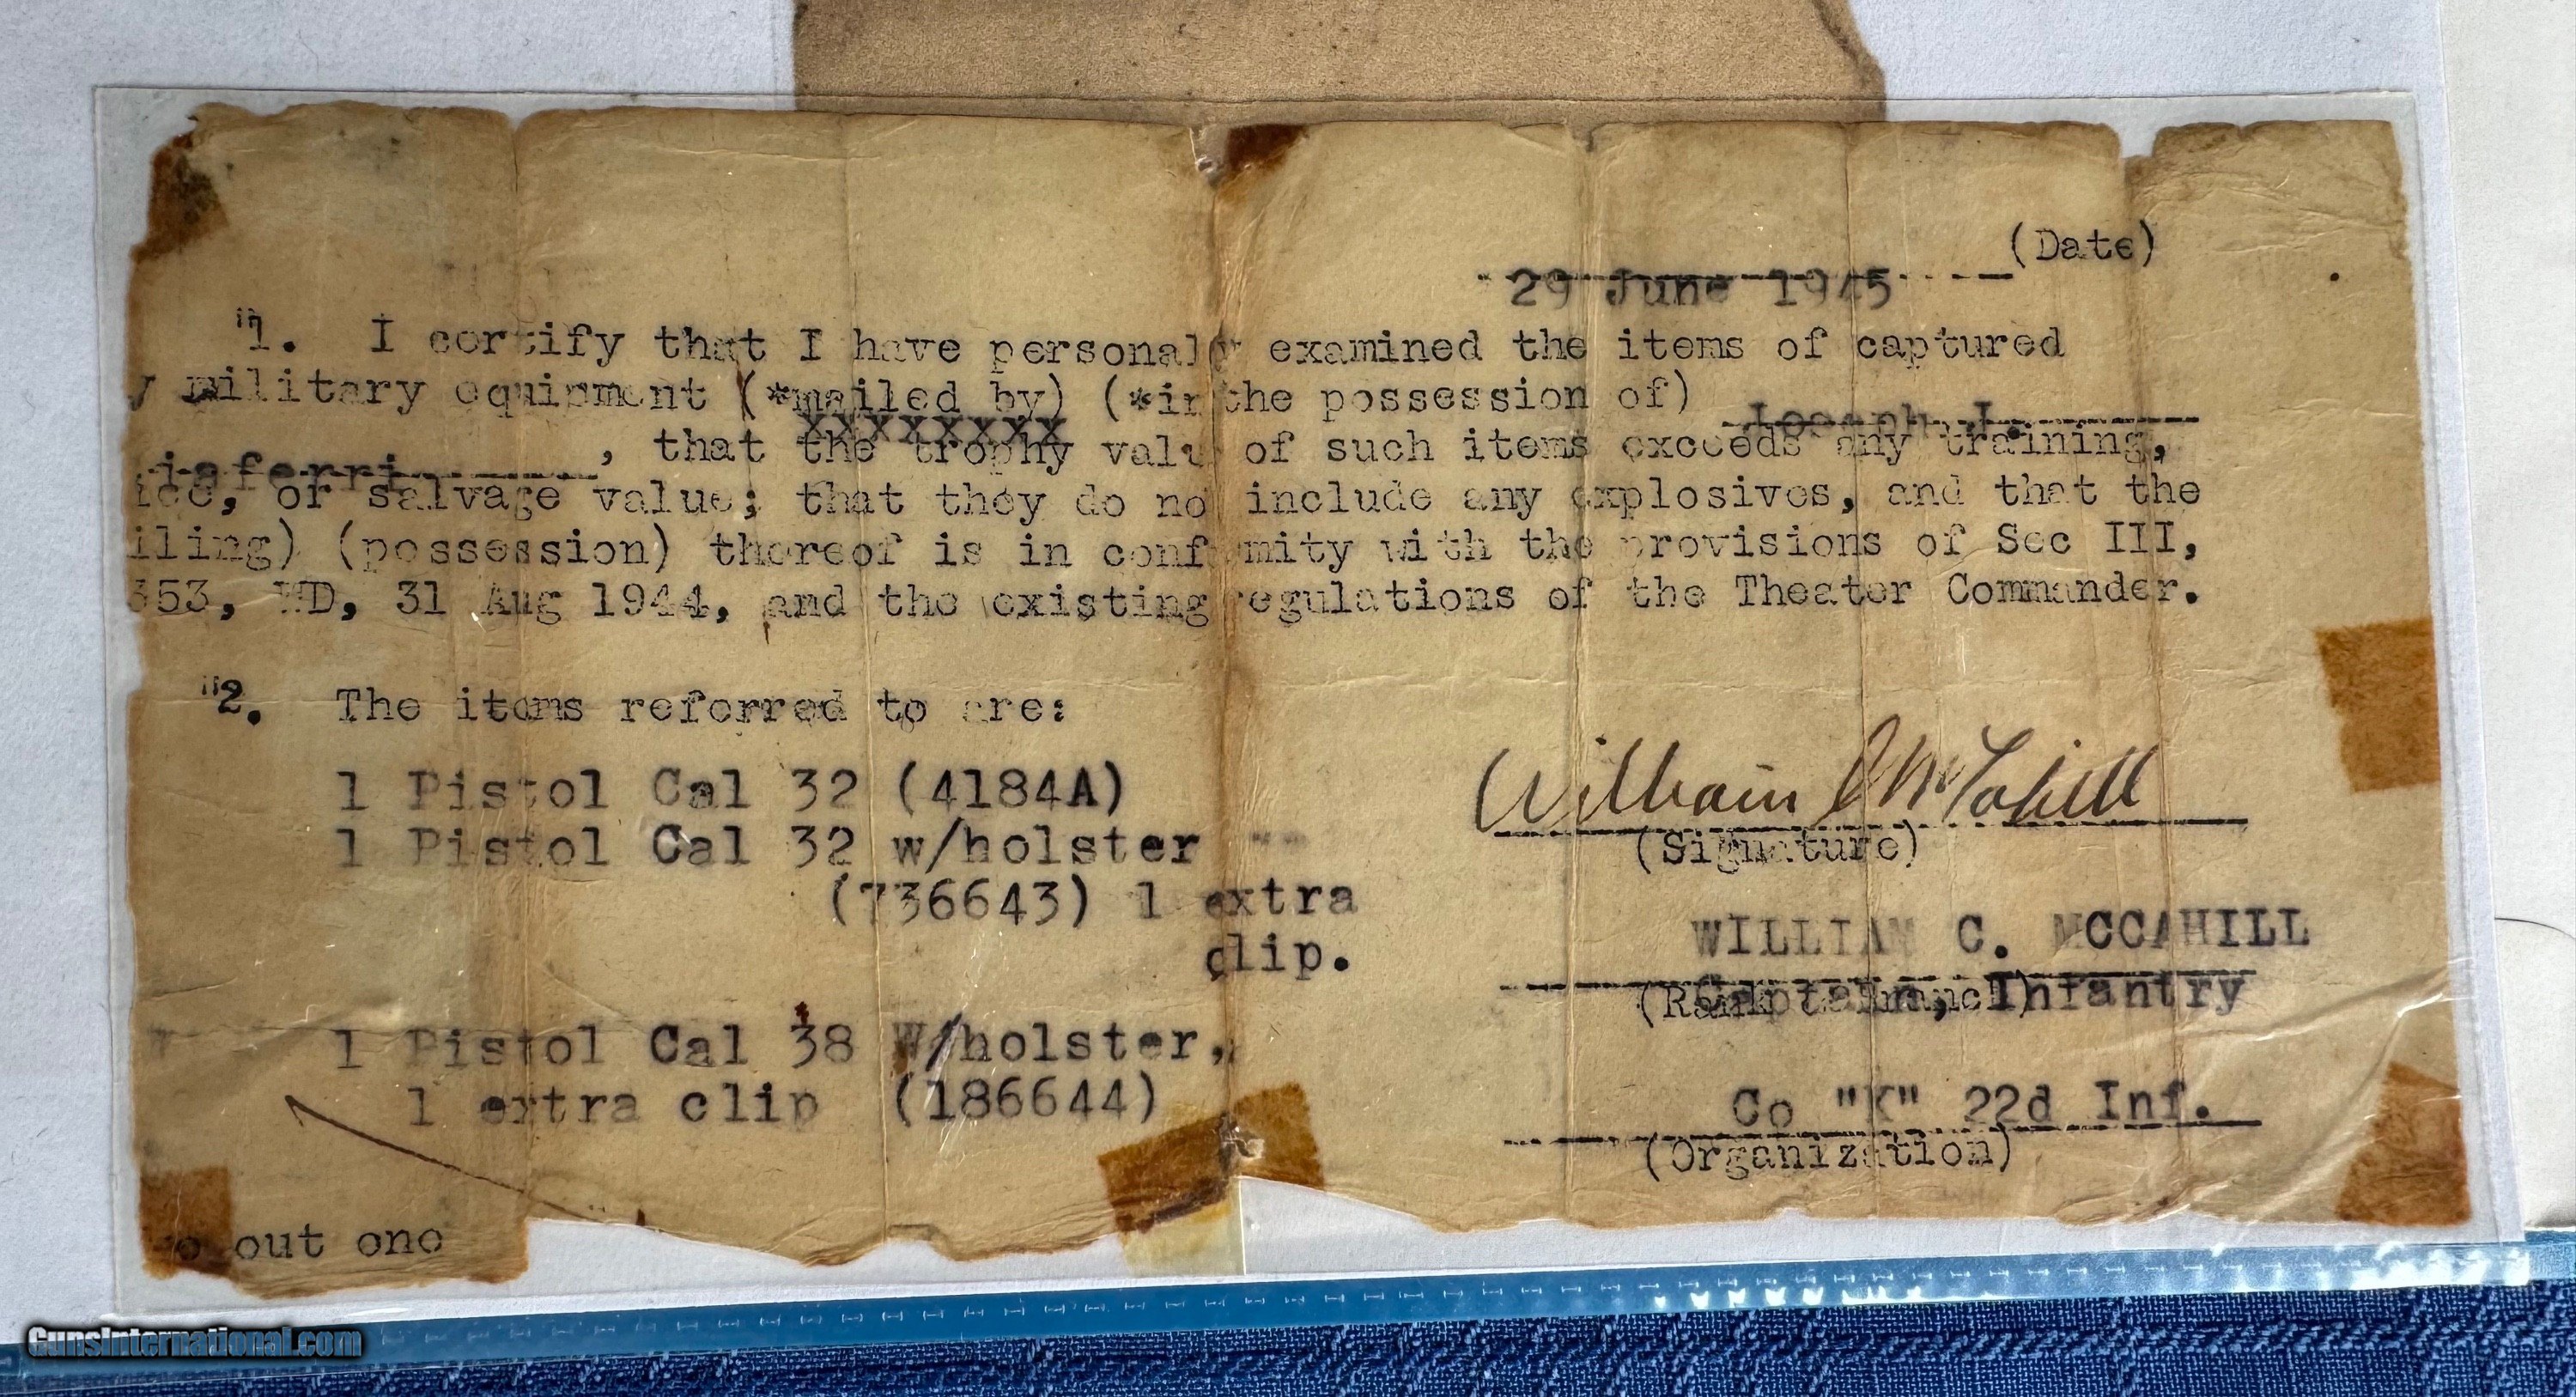 (Date)
29 June 1945
"1. I certify that I have personal examined the items of captured
military equipment (*mailed by) (*in the possession of) Joseph J.
xxxxxxxx
iaferri, that the trophy valu of such items exceeds any training,
ice, or salvage value; that they do no include any explosives, and that the
iling) (possession) thereof is in conf mity with the provisions of Sec III,
353, WD, 31 Aug 1944, and the existing regulations of the Theater Commander.
"2. The items referred to are:
1 Pistol Cal 32 (4184A)
1 Pistol Cal 32 w/holster
(736643) 1 extra
clip.
1 Pistol Cal 38 W/holster,
1 extra clip (186644)
out one
William C McCahill
(Signature)
WILLIAM C. MCCAHILL
Captain, Infantry
(Rank Branch)
Co "K" 22d Inf.
(Organization)
GunsInternational.com